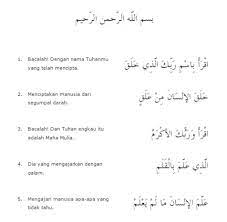 بسم الله الرحمن الرحيم
1. Bacalah! Dengan nama Tuhanmu yang telah mencipta. اقْرَأْ بِاسْمِ رَبِّكَ الَّذِي خَلَقَ
2. Menciptakan manusia dari segumpal darah. خَلَقَ الْإِنسَانَ مِنْ عَلَقٍ
3. Bacalah! Dan Tuhan engkau itu adalah Maha Mulia. اقْرَأْ وَرَبُّكَ الْأَكْرَمُ
4. Dia yang mengajarkan dengan qalam. الَّذِي عَلَّمَ بِالْقَلَمِ
5. Mengajari manusia apa-apa yang tidak tahu. عَلَّمَ الْإِنسَانَ مَا لَمْ يَعْلَمْ